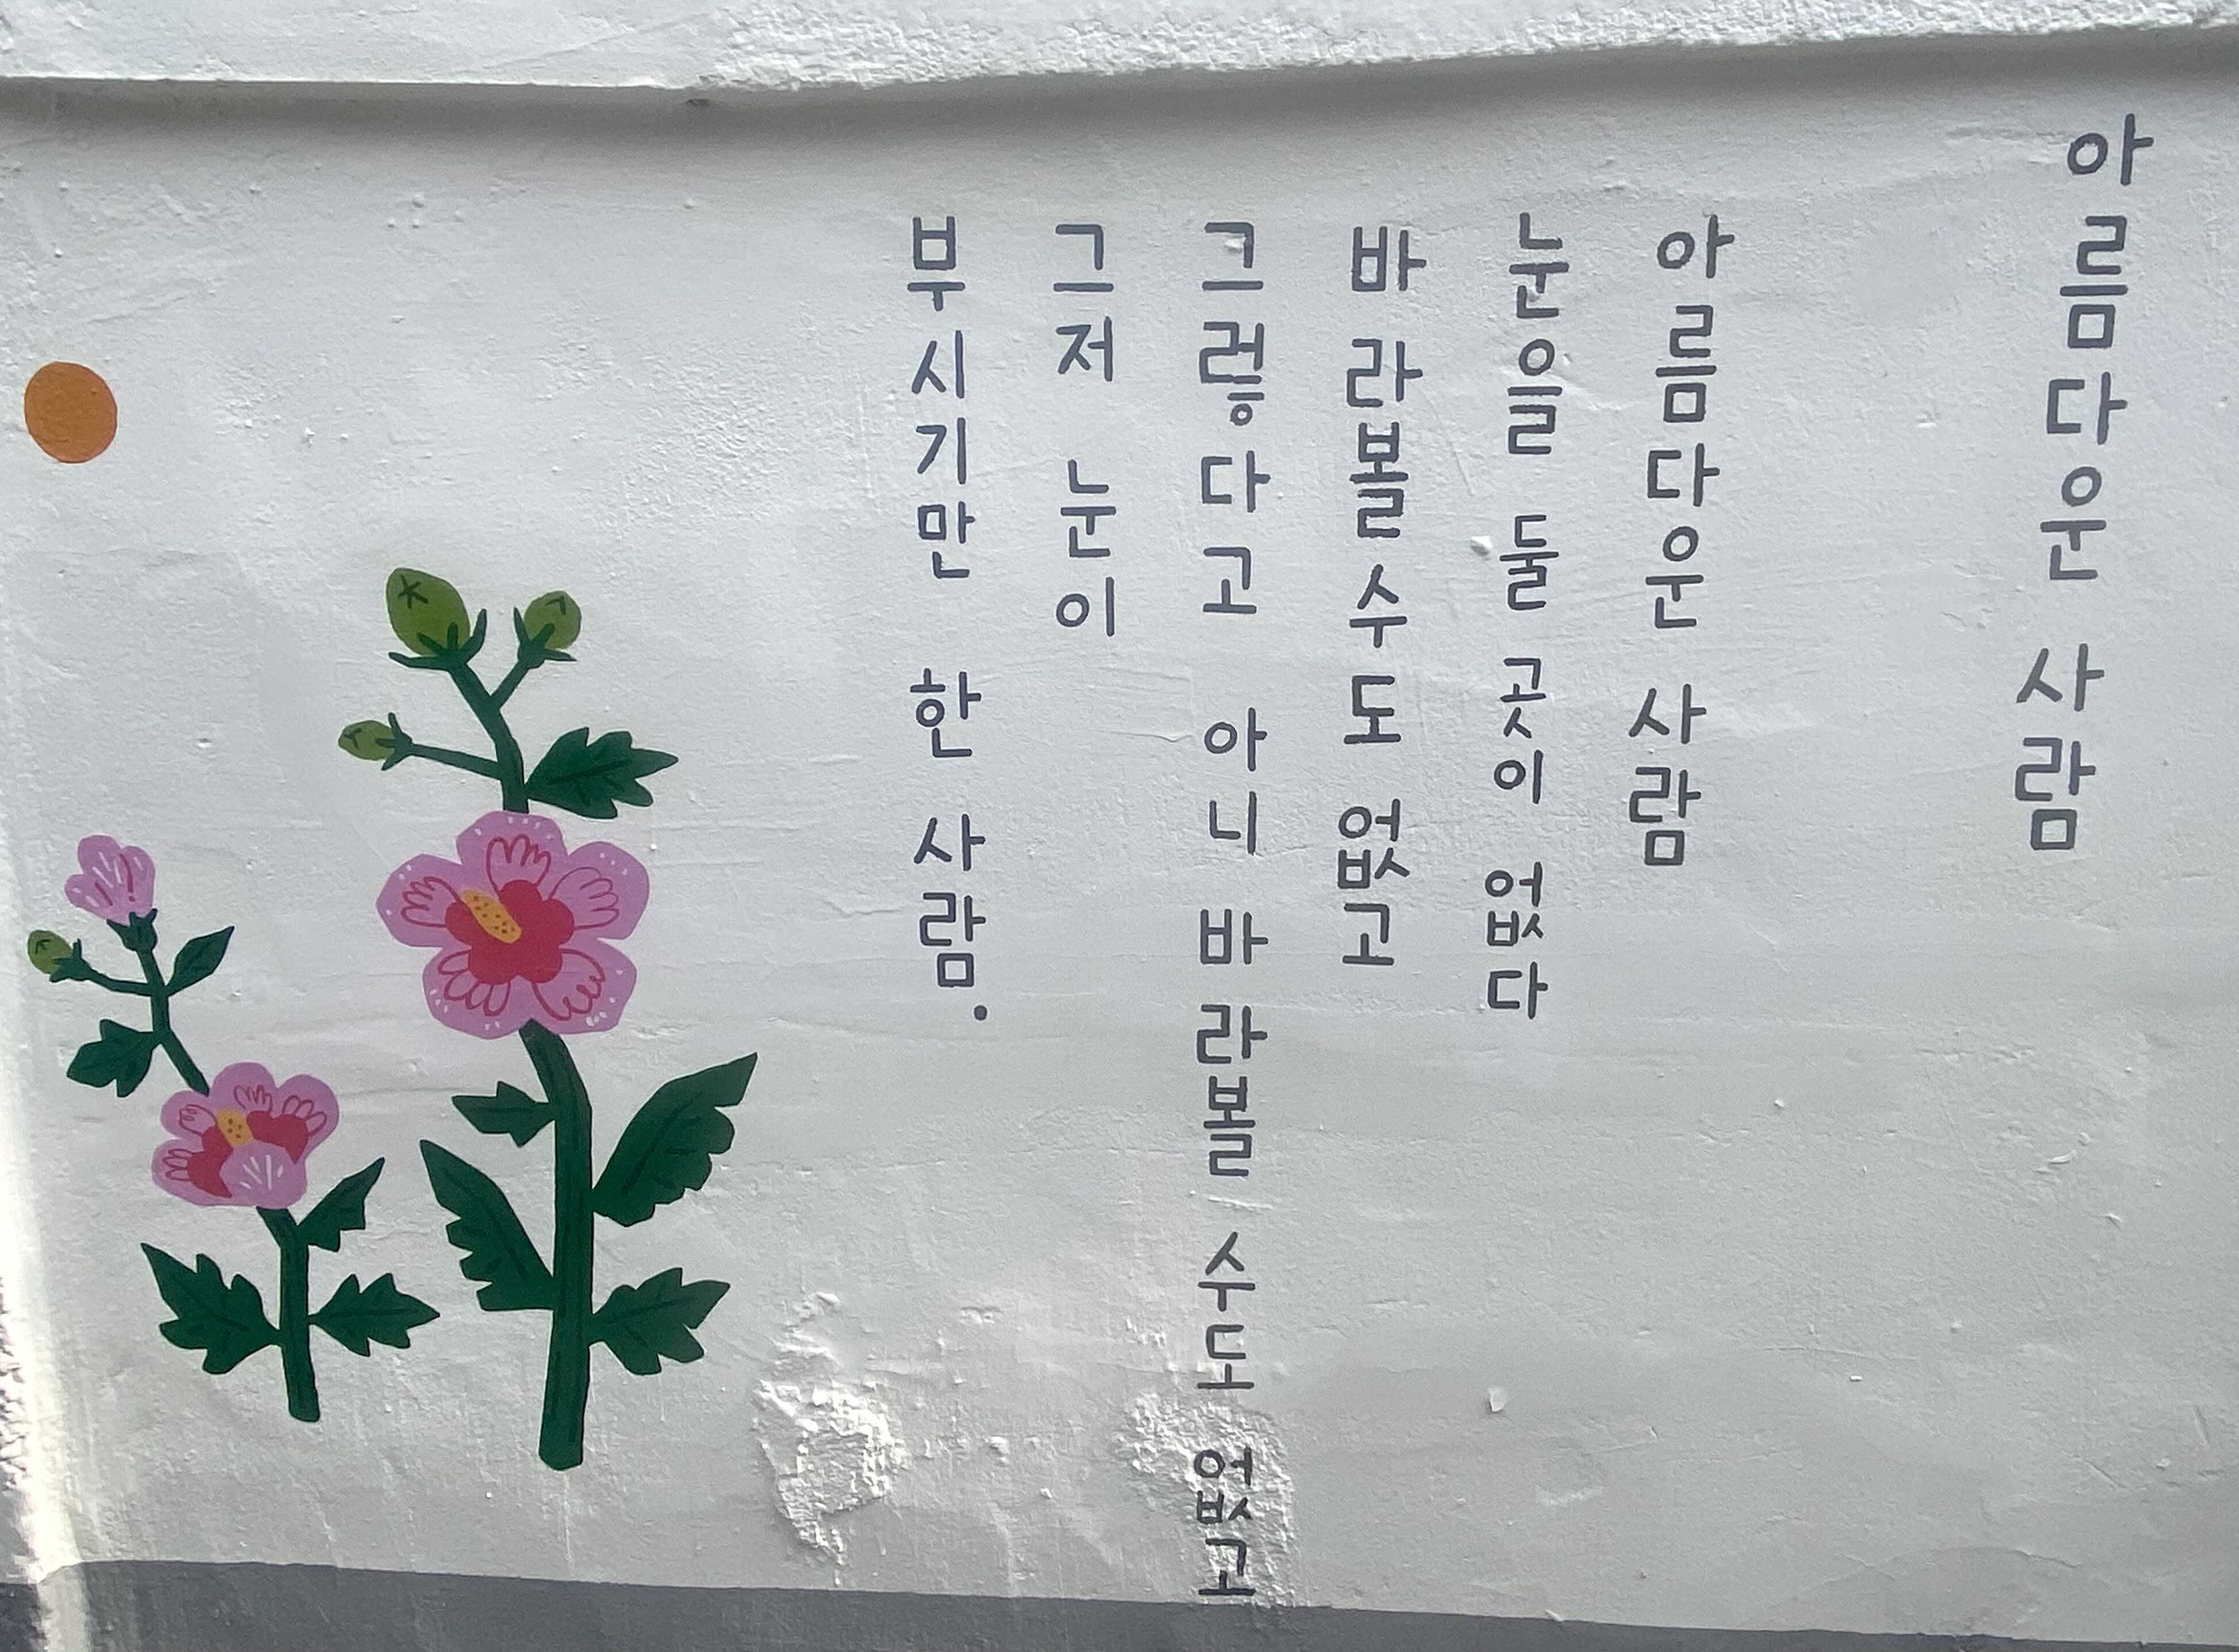 아름다운 사람
아름다운 사람
눈을 둘 곳이 없다
바라볼 수도 없고
그렇다고 아니 바라볼 수도 없고
그저 눈이
부시기만 한 사람.